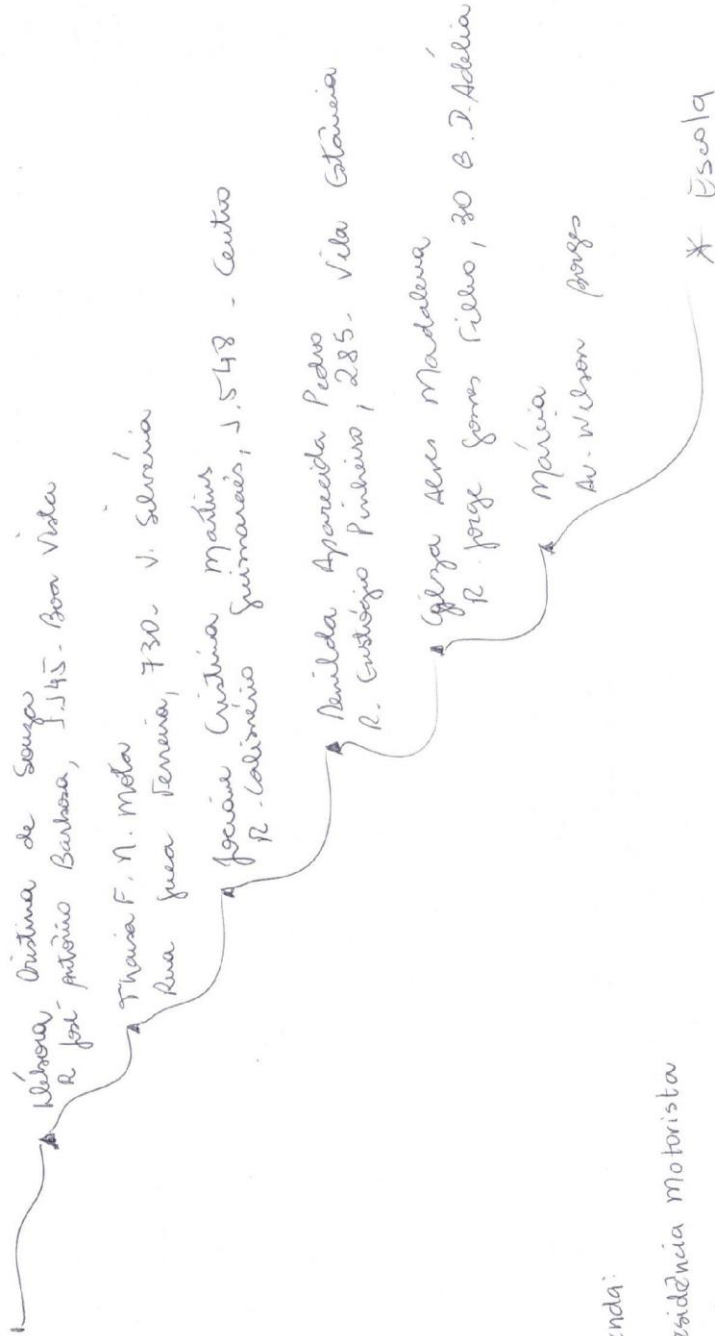 Débora Cristina de Souza
R José Antônio Barbosa, 1.145 - Boa Vista
Thaisa F. N. Mota
Rua Ferreira, 730 - V. Silvéria
Joeiane Cristina Martins
R. Calimério Guimarães, 1.548 - Centro
Denilda Aparecida Pedro
R. Eustógio Pinheiro, 285 - Vila
Alves Madalena
R. Jorge Gomes Filho, 30 B. D. Adélia
Márcia
Av. Wilson Borges
* Escola
enda:
esidência motorista